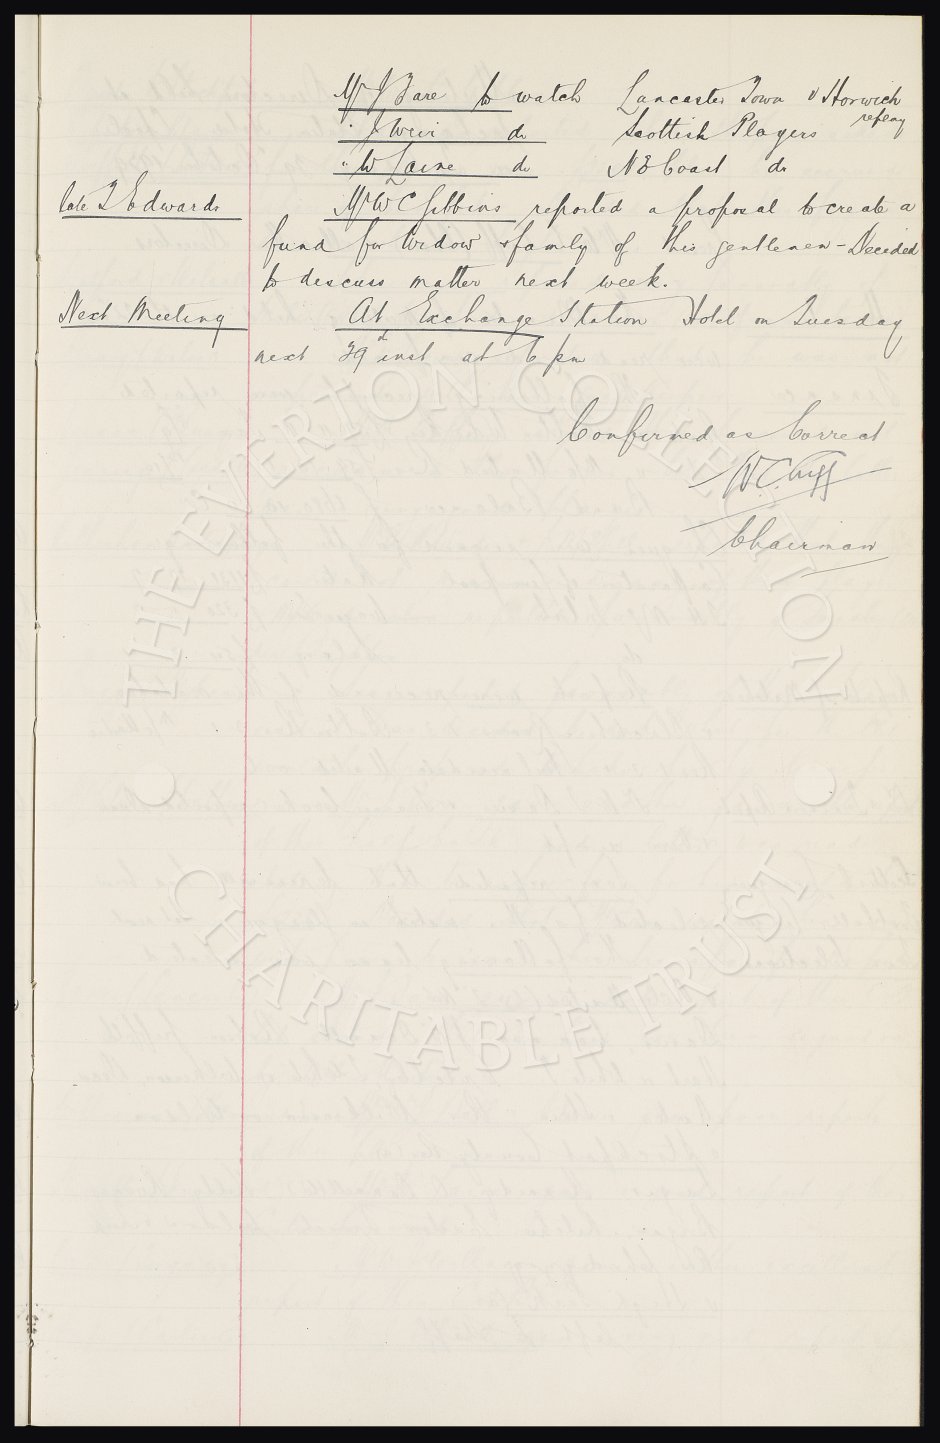 Mr J Fare to watch Lancaster Town v Horwich
replay
" J Weir do Scottish Players
" W Laine do N E Coast do
late T Edwards Mr W C Gibbins reported a proposal to create a
fund for widow & family of this gentleman - Decided
to discuss matter next week.
Next Meeting At Exchange Station Hotel on Tuesday
next 29th inst at 6 pm
Confirmed as Correct
W.C. Cuff
Chairman
THE EVERTON COLLECTION
CHARITABLE TRUST